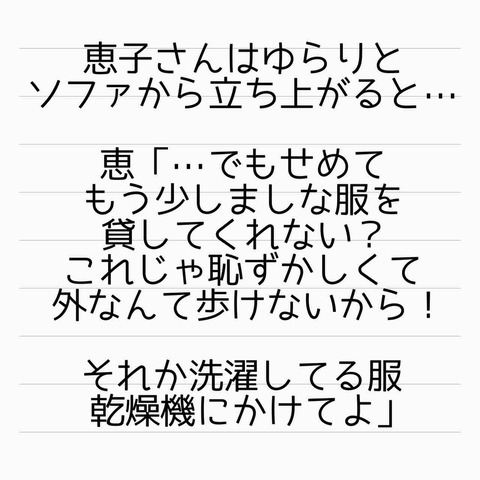 恵子さんはゆらりと
ソファから立ち上がると…
恵「…でもせめて
もう少しましな服を
貸してくれない？
これじゃ恥ずかしくて
外なんて歩けないから！
それか洗濯してる服
乾燥機にかけてよ」